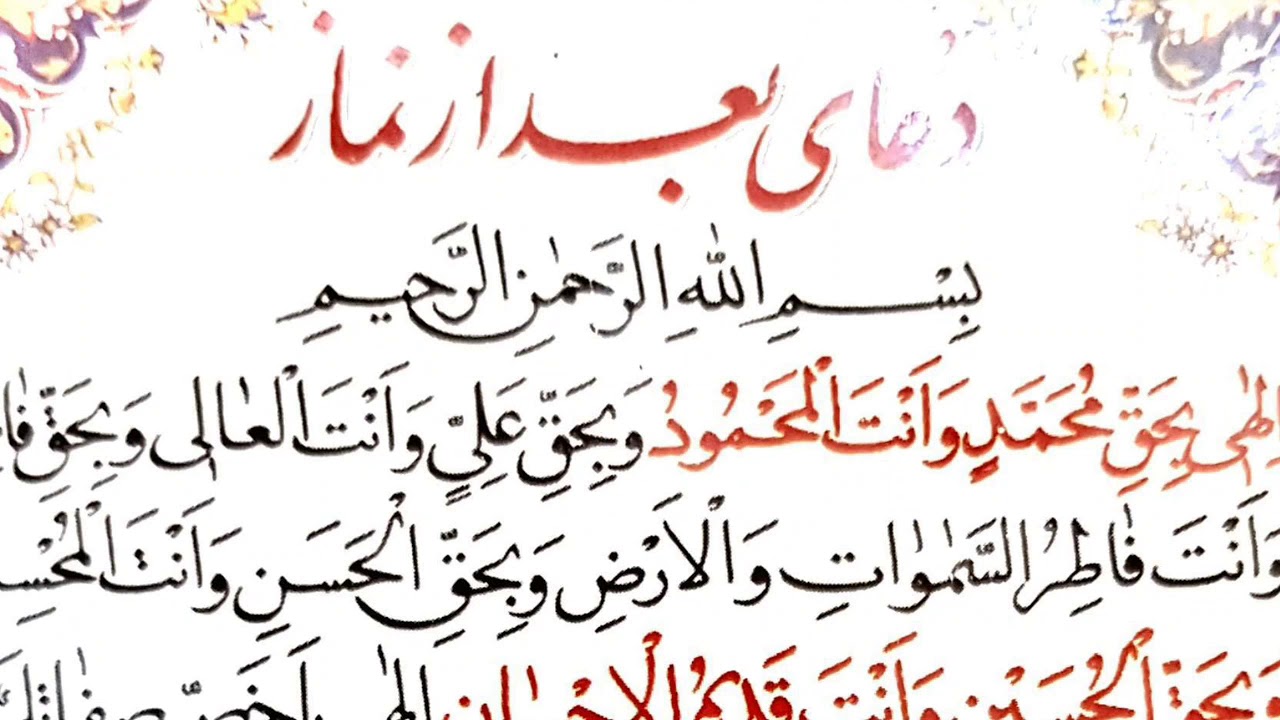 دعای بعد از نماز
بِسْمِ اللّٰهِ الرَّحْمٰنِ الرَّحیمِ
اِلٰهی بِحَقِّ مُحَمَّدٍ وَاَنْتَ الْمَحْمُودُ وَبِحَقِّ عَلِیٍّ وَاَنْتَ الْعٰالی وَبِحَقِّ
وَاَنْتَ فٰاطِرُ السَّمٰوٰاتِ وَالْاَرْضِ وَبِحَقِّ الْحَسَنِ وَاَنْتَ
وَبِحَقِّ الْحُسَیْنِ وَاَنْتَ قَدیمُ الْاِحْسٰانِ اِلٰهی